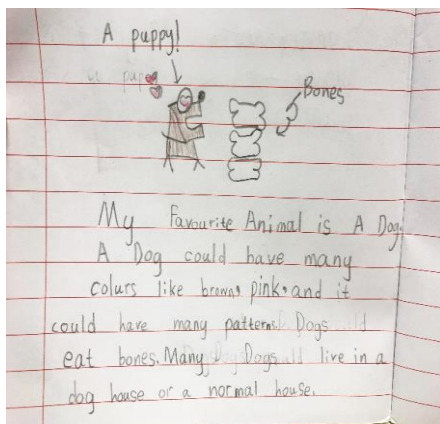 A puppy!
Bones
My Favourite Animal is A Dog.
A Dog could have many
colurs like brown, pink, and it
could have many patterns. Dogs
eat bones. Many Dogs live in a
dog house or a normal house.